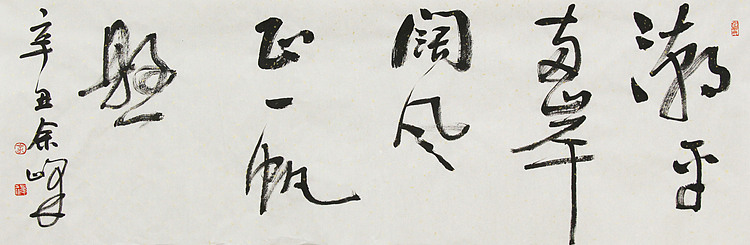 潮平
两岸
阔风
正一帆
悬
辛丑余峰